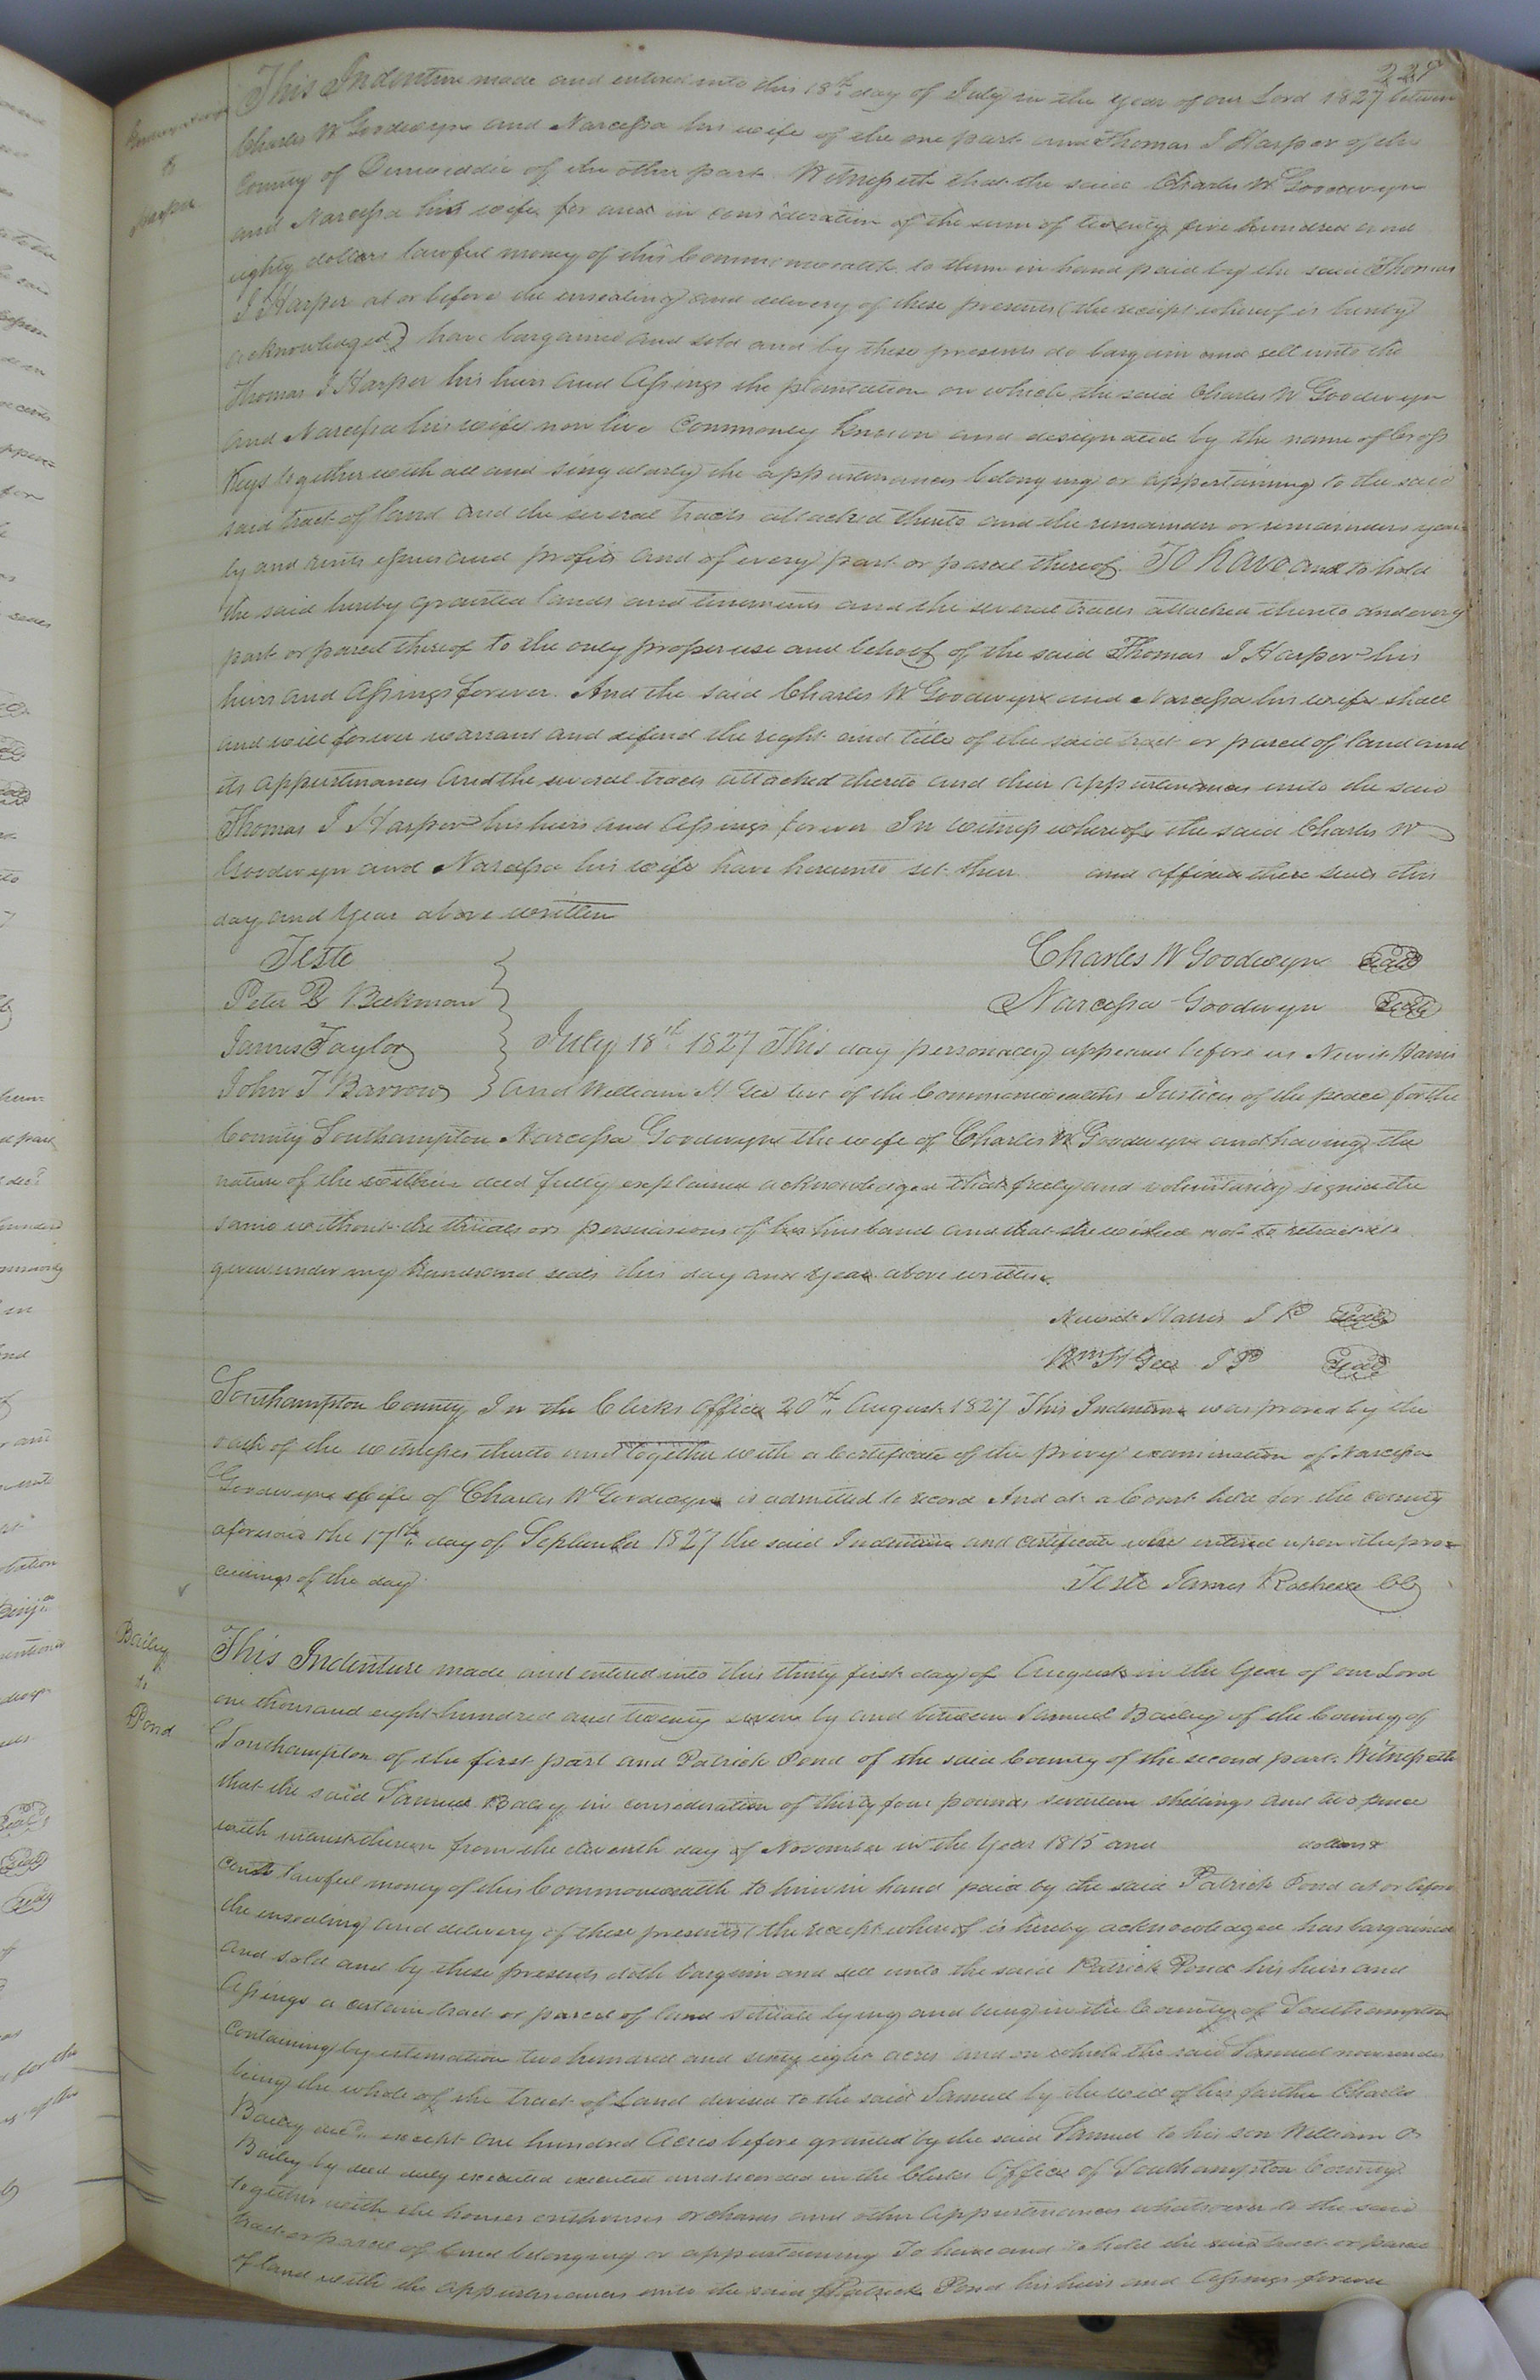 229
Goodwyn
to
Harper
This Indenture made and entered into this 18th day of July in the year of our Lord 1827 between
Charles W Goodwyn and Narcissa his wife of the one part and Thomas J Harper of the
County of Dinwiddie of the other part Witnesseth that the said Charles W Goodwyn
and Narcissa his wife for and in consideration of the sum of twenty five hundred and
eighty dollars lawful money of this Commonwealth to them in hand paid by the said Thomas
J Harper at or before the ensealing and delivery of these presents (the receipt whereof is hereby
acknowledged) have bargained and sold and by these presents do bargain and sell unto the
Thomas J Harper his heirs and Assings the plantation on which the said Charles W Goodwyn
and Narcissa his wife now live Commonly known and designated by the name of Cross
Keys together with all and singularly the appurtenances belonging or appertaining to the said
said tract of land and the several tracts attached thereto and the remainder or remainders year
ly and rents issues and profits and of every part or parcel thereof To have and to hold
the said hereby granted lands and tenements and the several tracts attached thereto and every
part or parcel thereof to the only proper use and behoof of the said Thomas J Harper his
heirs and Assings forever. And the said Charles W Goodwyn and Narcissa his wife shall
and will forever warrant and defend the right and title of the said tract or parcel of land and
its appurtenances and the several tracts attached thereto and their appurtenances unto the said
Thomas J Harper his heirs and Assings forever In witness whereof the said Charles W
Goodwyn and Narcissa his wife have hereunto set their and affixed there seals this
day and year above written
Teste
Charles W Goodwyn Seal
Peter B Beekman
Narcissa Goodwyn Seal
James Taylor
July 18th 1827 This day personally appeared before us Newit Harris
John T Barrow
and William H Gee two of the Commonwealths Justices of the peace for the
County Southampton Narcissa Goodwyn the wife of Charles W Goodwyn and having the
nature of the within deed fully explained acknowledged that freely and voluntarily signed the
same without the threats or persuasions of her husband and that she wished not to retract it
given under my hands and seals this day and year above written
Newit Harris J P Seal
Wm H Gee J P Seal
Southampton County In the Clerks Office 20th August 1827 This Indenture was proved by the
oath of the witnesses thereto and together with a Certificate of the privy examination of Narcissa
Goodwyn wife of Charles W Goodwyn is admitted to record And at a Court held for the county
aforesaid the 17th day of September 1827 the said Indenture and certificate were entered upon the pro
ceedings of the day
Teste James Rochelle CC
Bailey
to
Pond
This Indenture made and entered into this thirty first day of August in the year of our Lord
one thousand eight hundred and twenty seven by and between Samuel Bailey of the County of
Southampton of the first part and Patrick Pond of the said County of the second part Witnesseth
that the said Samuel Bailey in consideration of thirty four pounds seventeen shillings and two pence
with interest thereon from the eleventh day of November in the year 1815 and dollars &
cents lawful money of this Commonwealth to him in hand paid by the said Patrick Pond at or before
the ensealing and delivery of these presents (the receipt whereof is hereby acknowledged has bargained
and sold and by these presents doth bargain and sell unto the said Patrick Pond his heirs and
Assings a certain tract or parcel of land situate lying and being in the County of Southampton
containing by estimation two hundred and sixty eight acres and on which the said Samuel now resides
being the whole of the tract of Land devised to the said Samuel by the will of his father Charles
Bailey decd except One hundred Acres before granted by the said Samuel to his son William O
Bailey by deed duly executed executed and recorded in the Clerks Office of Southampton County
together with the houses outhouses orchards and other appurtenances whatsoever to the said
tract or parcel of land belonging or appertaining To have and to hold the said tract or parcel
of land with the appurtenances unto the said Patrick Pond his heirs and Assings forever